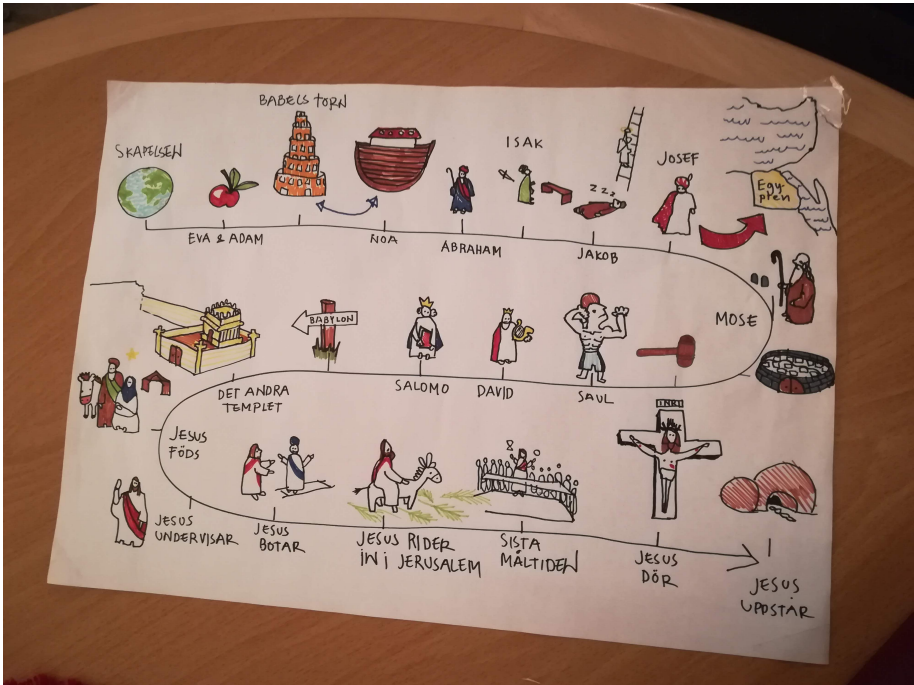 BABELS TORN
SKAPELSEN
ISAK
JOSEF
zzz
Egy-
pten
EVA & ADAM
NOA
ABRAHAM
JAKOB
MOSE
BABYLON
DET ANDRA
TEMPLET
SALOMO
DAVID
SAUL
INRI
JESUS
FÖDS
JESUS
UNDERVISAR
JESUS
BOTAR
JESUS RIDER
IN i JERUSALEM
SISTA
MÅLTIDEN
JESUS
DÖR
JESUS
UPPSTÅR